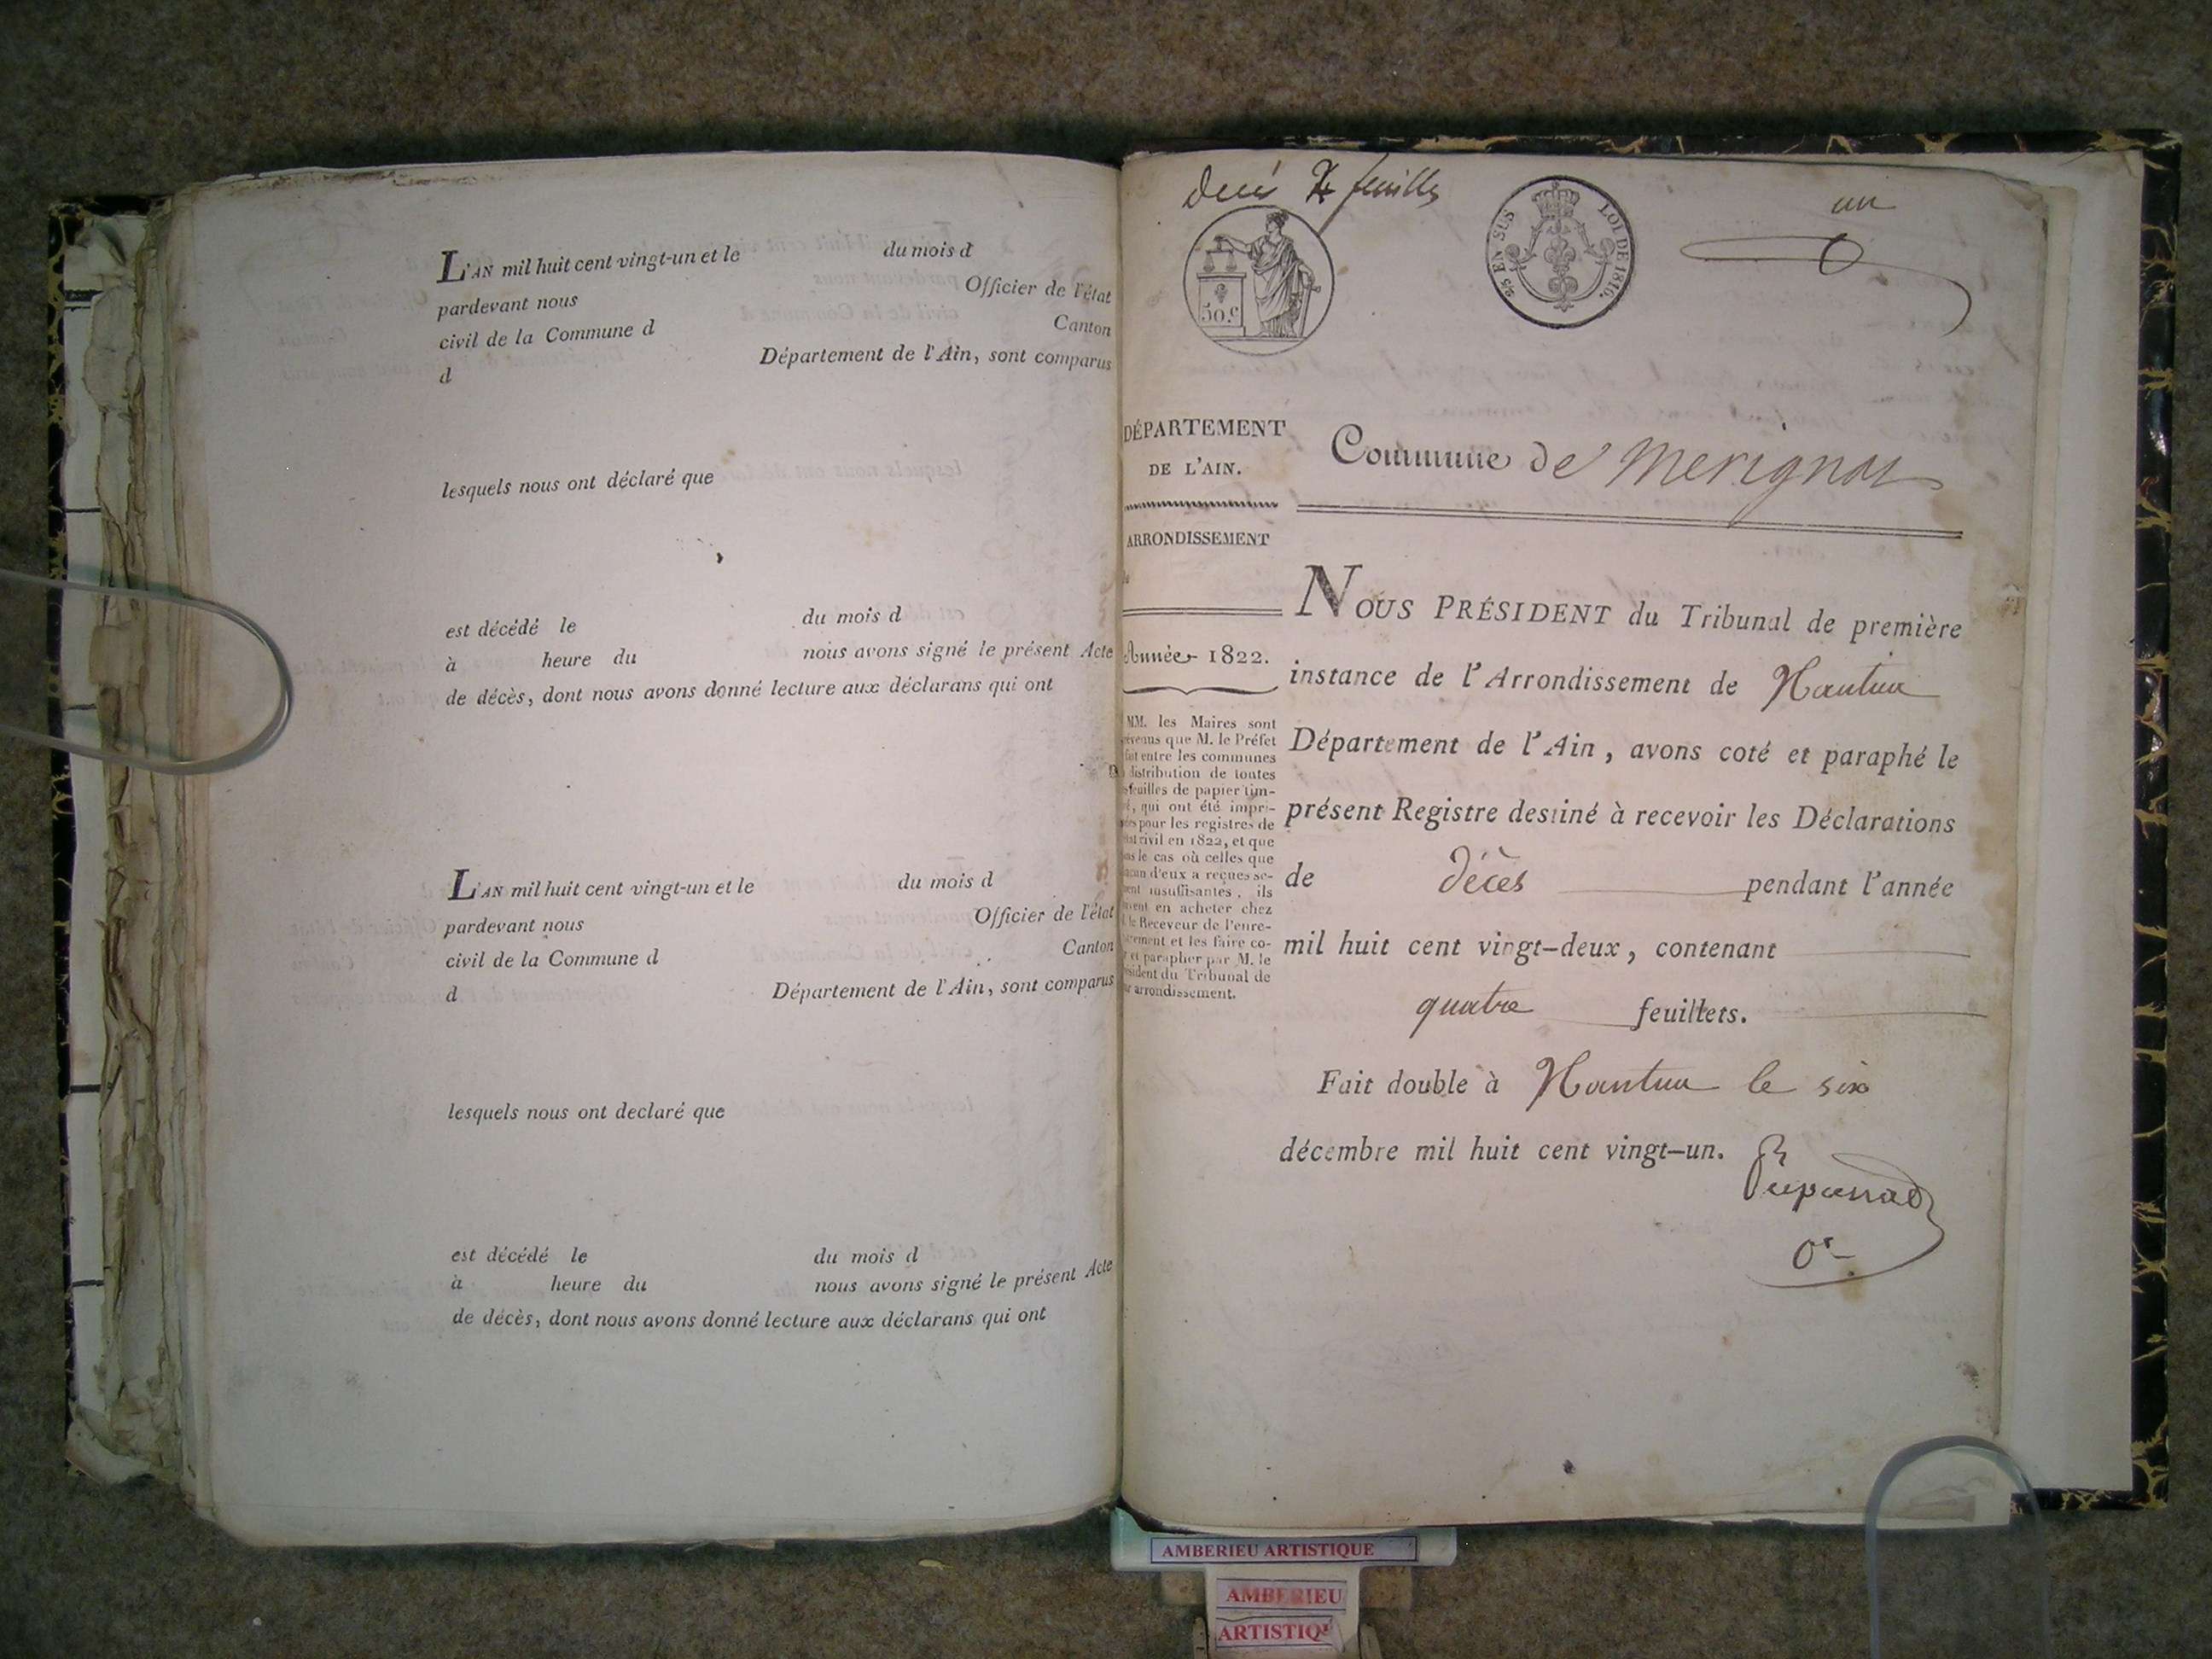 L'AN mil huit cent vingt-un et le du mois d
pardevant nous Officier de l'état
civil de la Commune d Canton
d Département de l'Ain, sont comparus
lesquels nous ont déclaré que
est décédé le du mois d
à heure du nous avons signé le présent Acte
de décès, dont nous avons donné lecture aux déclarans qui ont
L'AN mil huit cent vingt-un et le du mois d
pardevant nous Officier de l'état
civil de la Commune d Canton
d Département de l'Ain, sont comparus
lesquels nous ont declaré que
est décédé le du mois d
à heure du nous avons signé le présent Acte
de décès, dont nous avons donné lecture aux déclarans qui ont
feuilles
un
50 c
25 EN SUS
LOI DE 1816.
DÉPARTEMENT
DE L'AIN.
ARRONDISSEMENT
Année 1822.
MM. les Maires sont
que M. le Préfet
entre les communes
distribution de toutes
feuilles de papier tim-
qui ont été impri-
pour les registres de
civil en 1822, et que
le cas où celles que
d'eux a reçues se-
insuffisantes, ils
en acheter chez
le Receveur de l'enre-
et les faire co-
et parapher par M. le
du Tribunal de
arrondissement.
Commune de Merignat
NOUS PRÉSIDENT du Tribunal de première
instance de l'Arrondissement de Nantua
Département de l'Ain, avons coté et paraphé le
présent Registre destiné à recevoir les Déclarations
de Décès pendant l'année
mil huit cent vingt-deux, contenant
quatre feuillets.
Fait double à Nantua le six
décembre mil huit cent vingt-un.
AMBERIEU ARTISTIQUE
AMBERIEU
ARTISTIQU